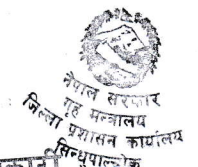 नेपाल सरकार
गृह मन्त्रालय
जिल्ला प्रशासन कार्यालय
सिन्धुपाल्चोक